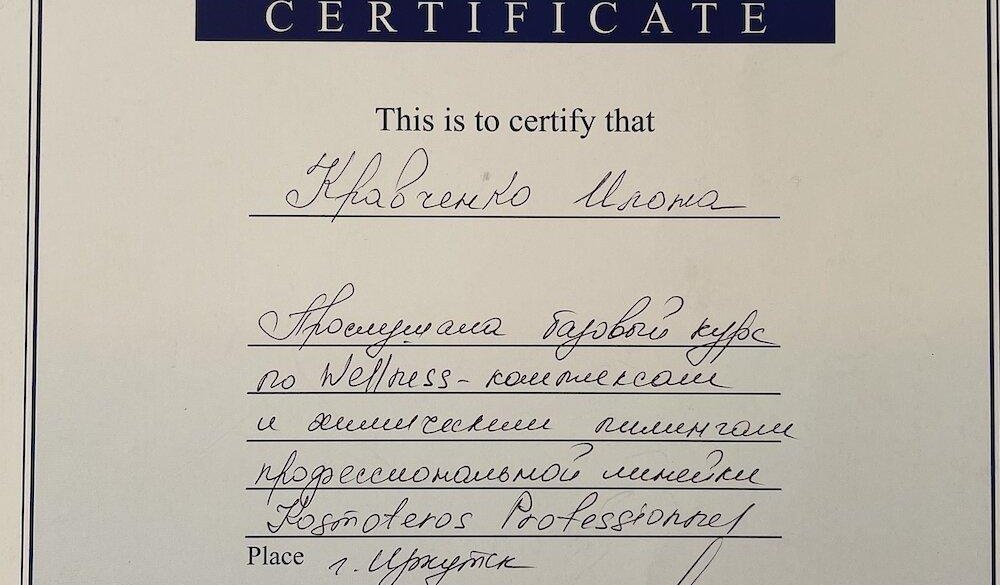 CERTIFICATE
This is to certify that
Кравченко Илона
Прослушала базовый курс
по Wellness-комплексам
и химическим пилингам
профессиональной линейки
Kosmoteros Professionnel
Place г. Иркутск